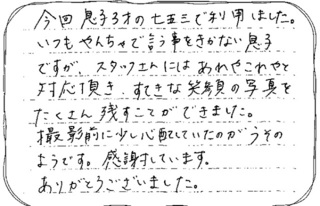 今回息子3才の七五三で利用しました。
いつもやんちゃで言う事をきかない息子
ですが、スタッフさんにはあれやこれやと
対応頂き、すてきな笑顔の写真を
たくさん残すことができました。
撮影前に少し心配していたのがうその
ようです。感謝しています。
ありがとうございました。